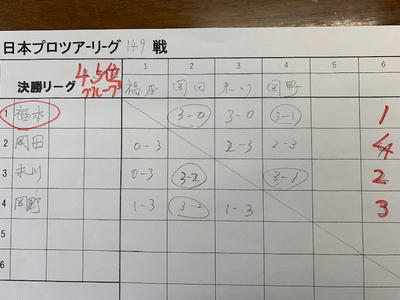 日本プロツアーリーグ 149 戦
決勝リーグ 4.5位 グループ 1 2 3 4 5 6
福本 岡田 赤川 岡野
1 福本 3-0 3-0 3-1 1
2 岡田 0-3 2-3 2-3 4
3 赤川 0-3 3-2 3-1 2
4 岡野 1-3 3-2 1-3 3
5
6